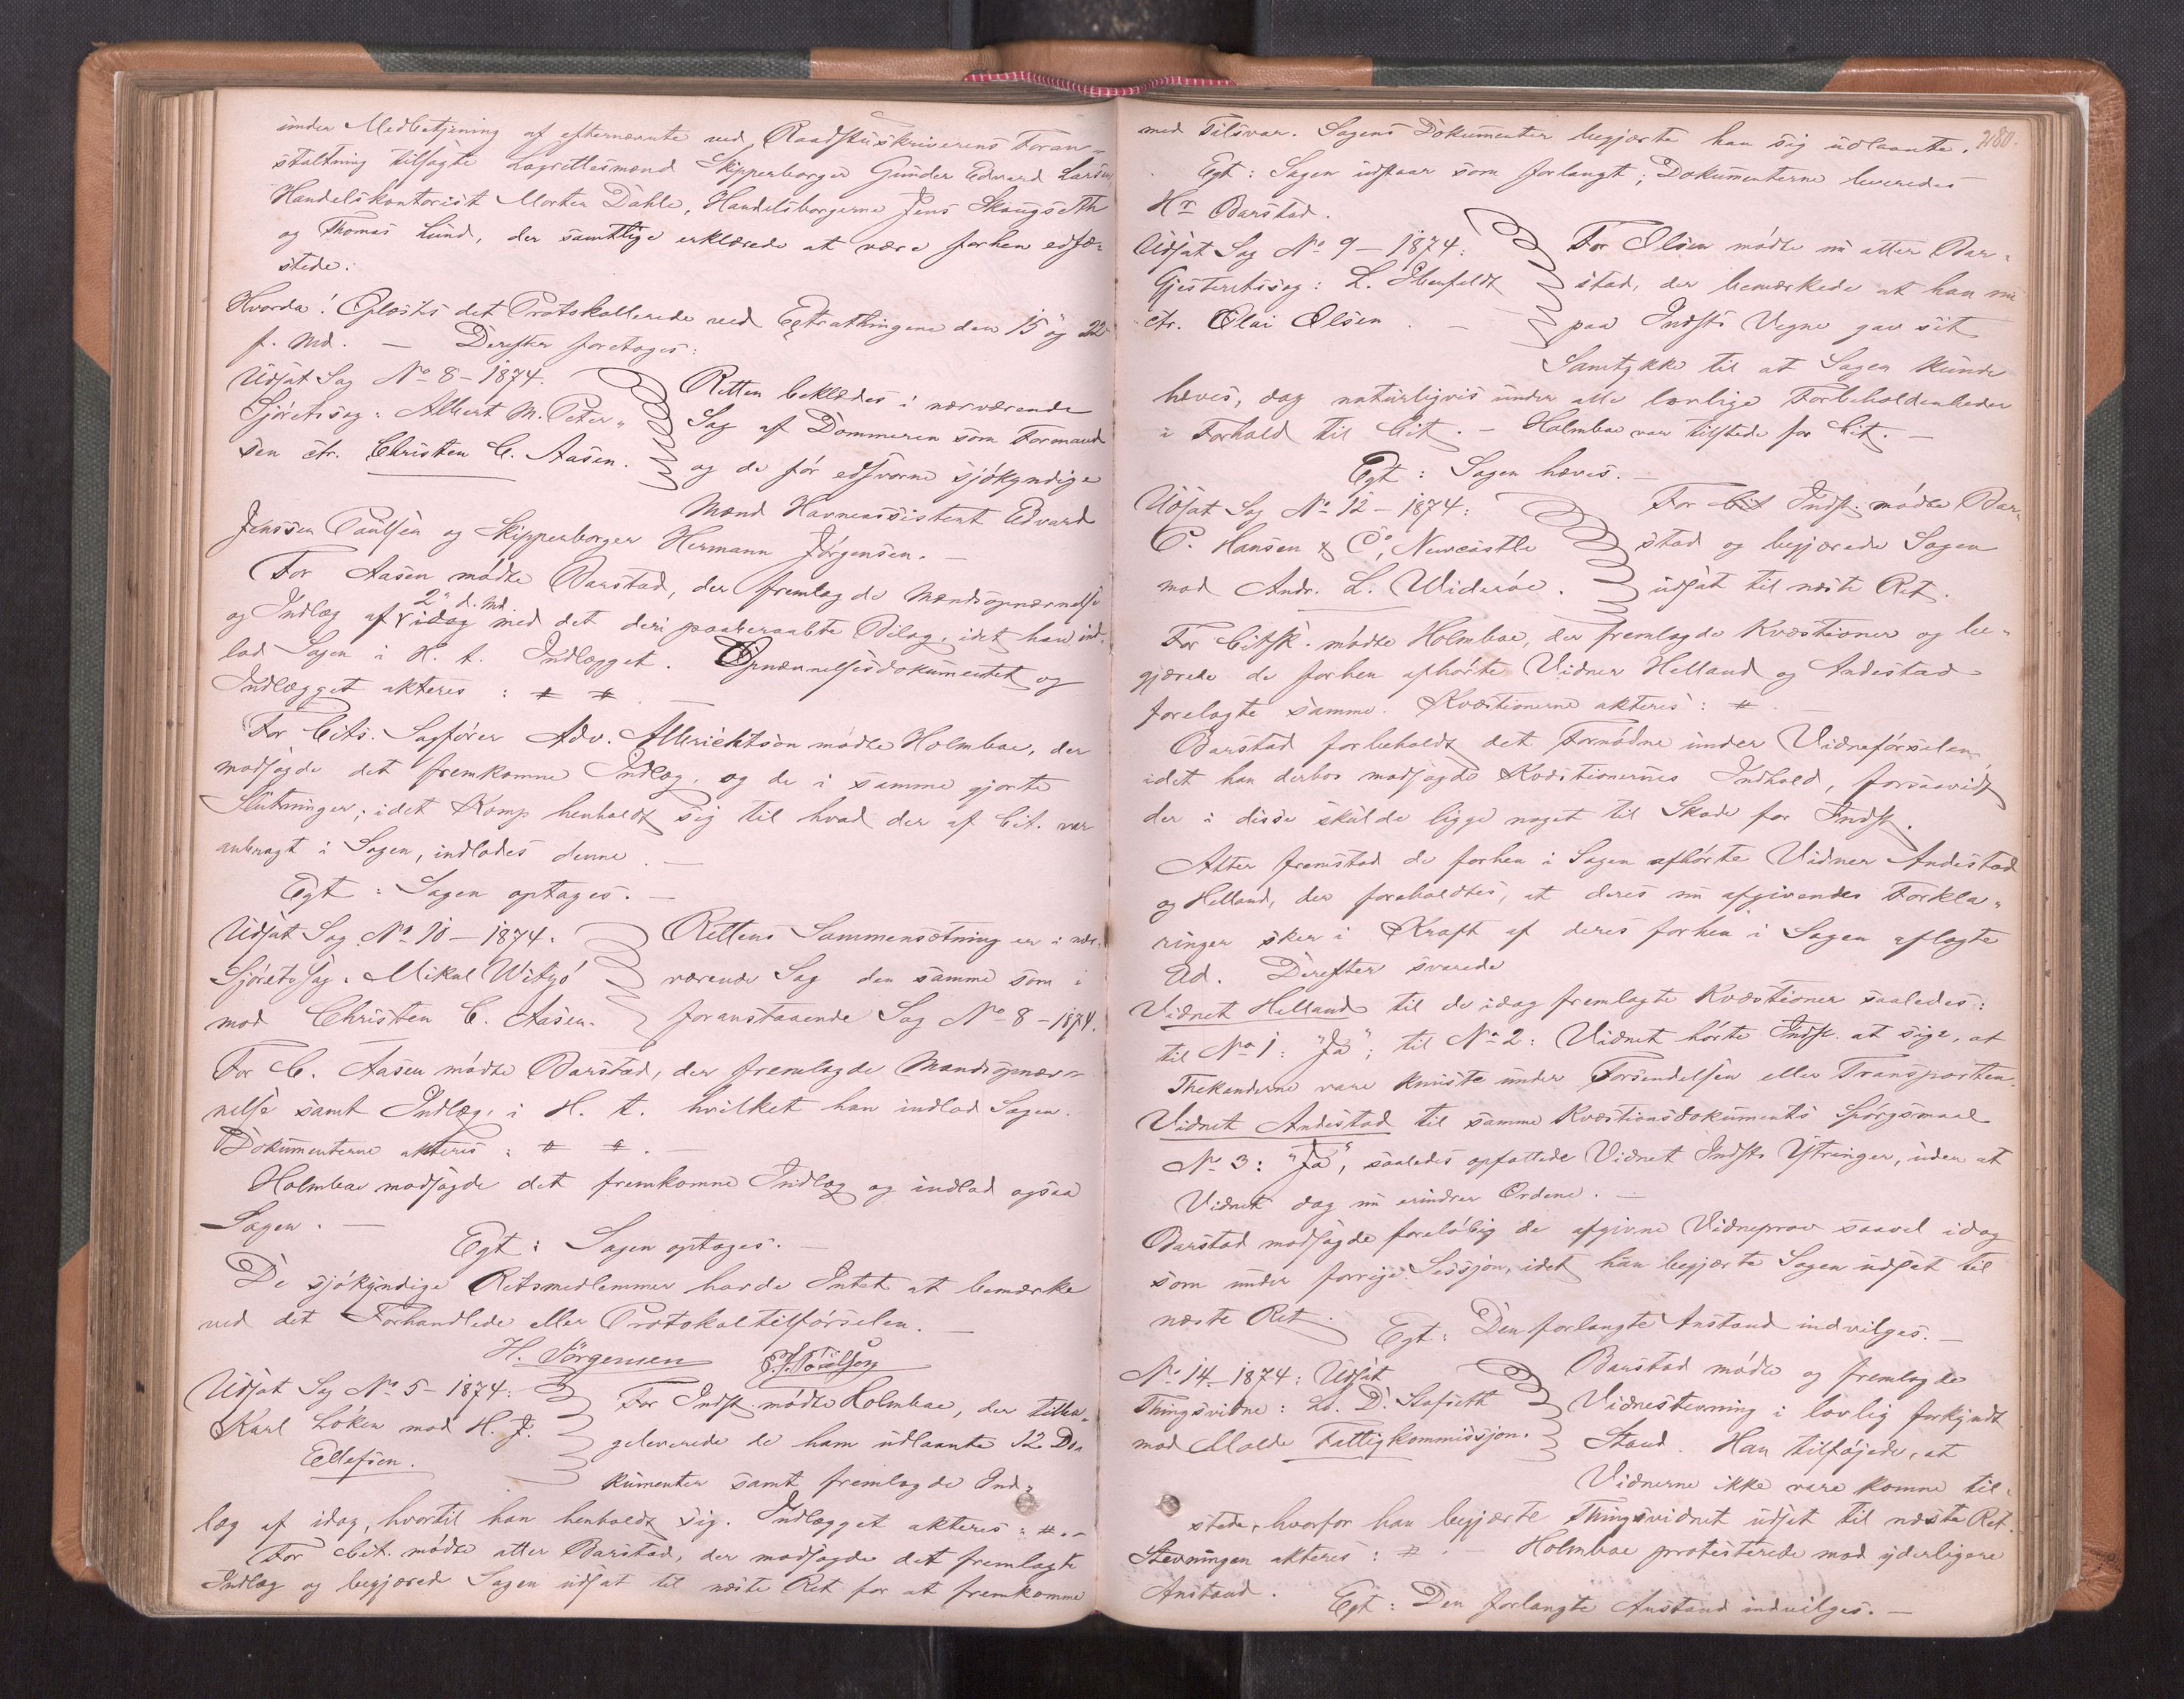 under Medbetjening af efternævnte ved Raadstuskriverens Foran-
staltning tilsagte Lagrettesmænd Skipperborger Gunder Edvard Larsen,
Handelskontorist Morten Dahle, Handelsborgerne Jens Skougseth
og Thomas Lund, der samtlige erklærede at være forhen edfæ-
stede.
Hvorda! Oplæstes det Protokollerede ved Extrathingene den 15 og 22
f. Md. — Derefter foretoges:
Udsat Sag No 8 – 1874.
Sjöretssag: Albert M. Peter-
sen ctr. Christen C. Aasen.
Retten beklædes i nærværende
Sag af Dommeren som Formand
og de før edsvorne sjökyndige
Mænd Havneassistent Edvard
Jenssen Paulsen og Skipperborger Hermann Jørgensen. —
For Aasen mödte Barstad, der fremlagde Mandsopnævnelse
og Indlæg af 2 d. Md. med det deri paaberaabte Bilag, idet han ind-
lod Sagen i H. t. Indlægget. Opnævnelsesdokumentet og
Indlægget akteres: # #. —
For Cits. Sagförer Adv. Albrichtson mödte Holmboe, der
modsagde det fremkomne Indlæg, og de i samme gjorte
Slutninger; idet Komp henholdt sig til hvad der af Cit. var
anbragt i Sagen, indlodes denne. —
Egt: Sagen optages. —
Udsat Sag No 10 – 1874.
Sjöretssag. Mikal Witsö
mod Christen C. Aasen.
Rettens Sammensætning er i nær-
værende Sag den samme som i
foranstaaende Sag No 8 – 1874.
For C. Aasen mödte Barstad, der fremlagde Mandsopnæv-
nelse samt Indlæg, i H. t. hvilket han indlod Sagen.
Dokumenterne akteres: # #. —
Holmboe modsagde det fremkomne Indlæg og indlod ogsaa
Sagen. —
Egt: Sagen optages. —
De sjökyndige Retsmedlemmer havde Intet at bemærke
ved det Forhandlede eller Protokoltilförselen. —
H. Jörgensen
Udsat Sag No 5 – 1874:
Karl Löken mod H. J.
Ellefsen.
For Indst. mödte Holmboe, der tilba-
geleverede de ham udlaante 12 Do-
kumenter samt fremlagde Ind-
læg af idag, hvortil han henholdt sig. Indlægget akteres: #. –
For Cit. mödte atter Barstad, der modsagde det fremlagte
Indlæg og begjæred Sagen udsat til næste Ret for at fremkomme
280.
med Tilsvar. Sagens Dokumenter begjærte han sig udlaante.
Egt: Sagen udstaar som forlangt; Dokumenterne leveredes
Hr Barstad.
Udsat Sag No 9 – 1874:
Gjesteretssag: L. Ebenfeldt
ctr. Olai Olsen. —
For Olsen mödte nu atter Bar-
stad, der bemærkede at han nu
paa Indsts Vegne gav sit
Samtykke til at Sagen kunde
hæves, dog naturligvis under alle lovlige Forbeholdenheder
i Forhold til Cit. – Holmboe var tilstede for Cit. –
Egt: Sagen hæves. —
Udsat Sag No 12 – 1874:
P. Hansen & Co, Newcastle
mod Andr. L. Wideröe.
For Cit Indst. mödte Bar-
stad og begjærede Sagen
udsat til næste Ret.
For Citsk. mödte Holmboe, der fremlagde Kvæstioner og be-
gjærede de forhen afhörte Vidner Helland og Andestad
forelagte samme. Kvæstionerne akteres: #. —
Barstad forbeholdt det Fornödne under Vidneförselen,
idet han derhos modsagde Kvæstionernes Indhold, forsaavidt
der i disse skulde ligge noget til Skade for Indst.
Atter fremstod de forhen i Sagen afhörte Vidner Andestad
og Helland, der foreholdtes, at deres nu afgivendes Forkla-
ringer sker i Kraft af deres forhen i Sagen aflagte
Ed. Derefter svarede
Vidnet Helland til de idag fremlagte Kvæstioner saaledes:
til No 1: "Ja"; til No 2: Vidnet hörte Indst. at sige, at
Thekanderne vare knuste under Forsendelsen eller Transporten.
Vidnet Andestad til samme Kvæstionsdokuments Spörgsmaal
No 3: "Ja", saaledes opfattede Vidnet Indsts Ytringer, uden at
Vidnet dog nu erindrer Ordene. —
Barstad modsagde forelöbig de afgivne Vidneprov saavel idag
som under forrige Sessjon, idet han begjærte Sagen udsat til
næste Ret.
Egt: Den forlangte Anstand indvilges. —
No 14 – 1874: Udsat
Thingsvidne: L. D. Stafseth
mod Molde Fattigkommissjon.
Barstad mödte og fremlagde
Vidnestevning i lovlig forkyndt
Stand. Han tilföjede, at
Vidnerne ikke vare komne til-
stede, hvorfor han begjærte Thingsvidnet udsat til næste Ret.
Stevningen akteres: #. – Holmboe protesterede mod yderligere
Anstand. Egt: Den forlangte Anstand indvilges. —